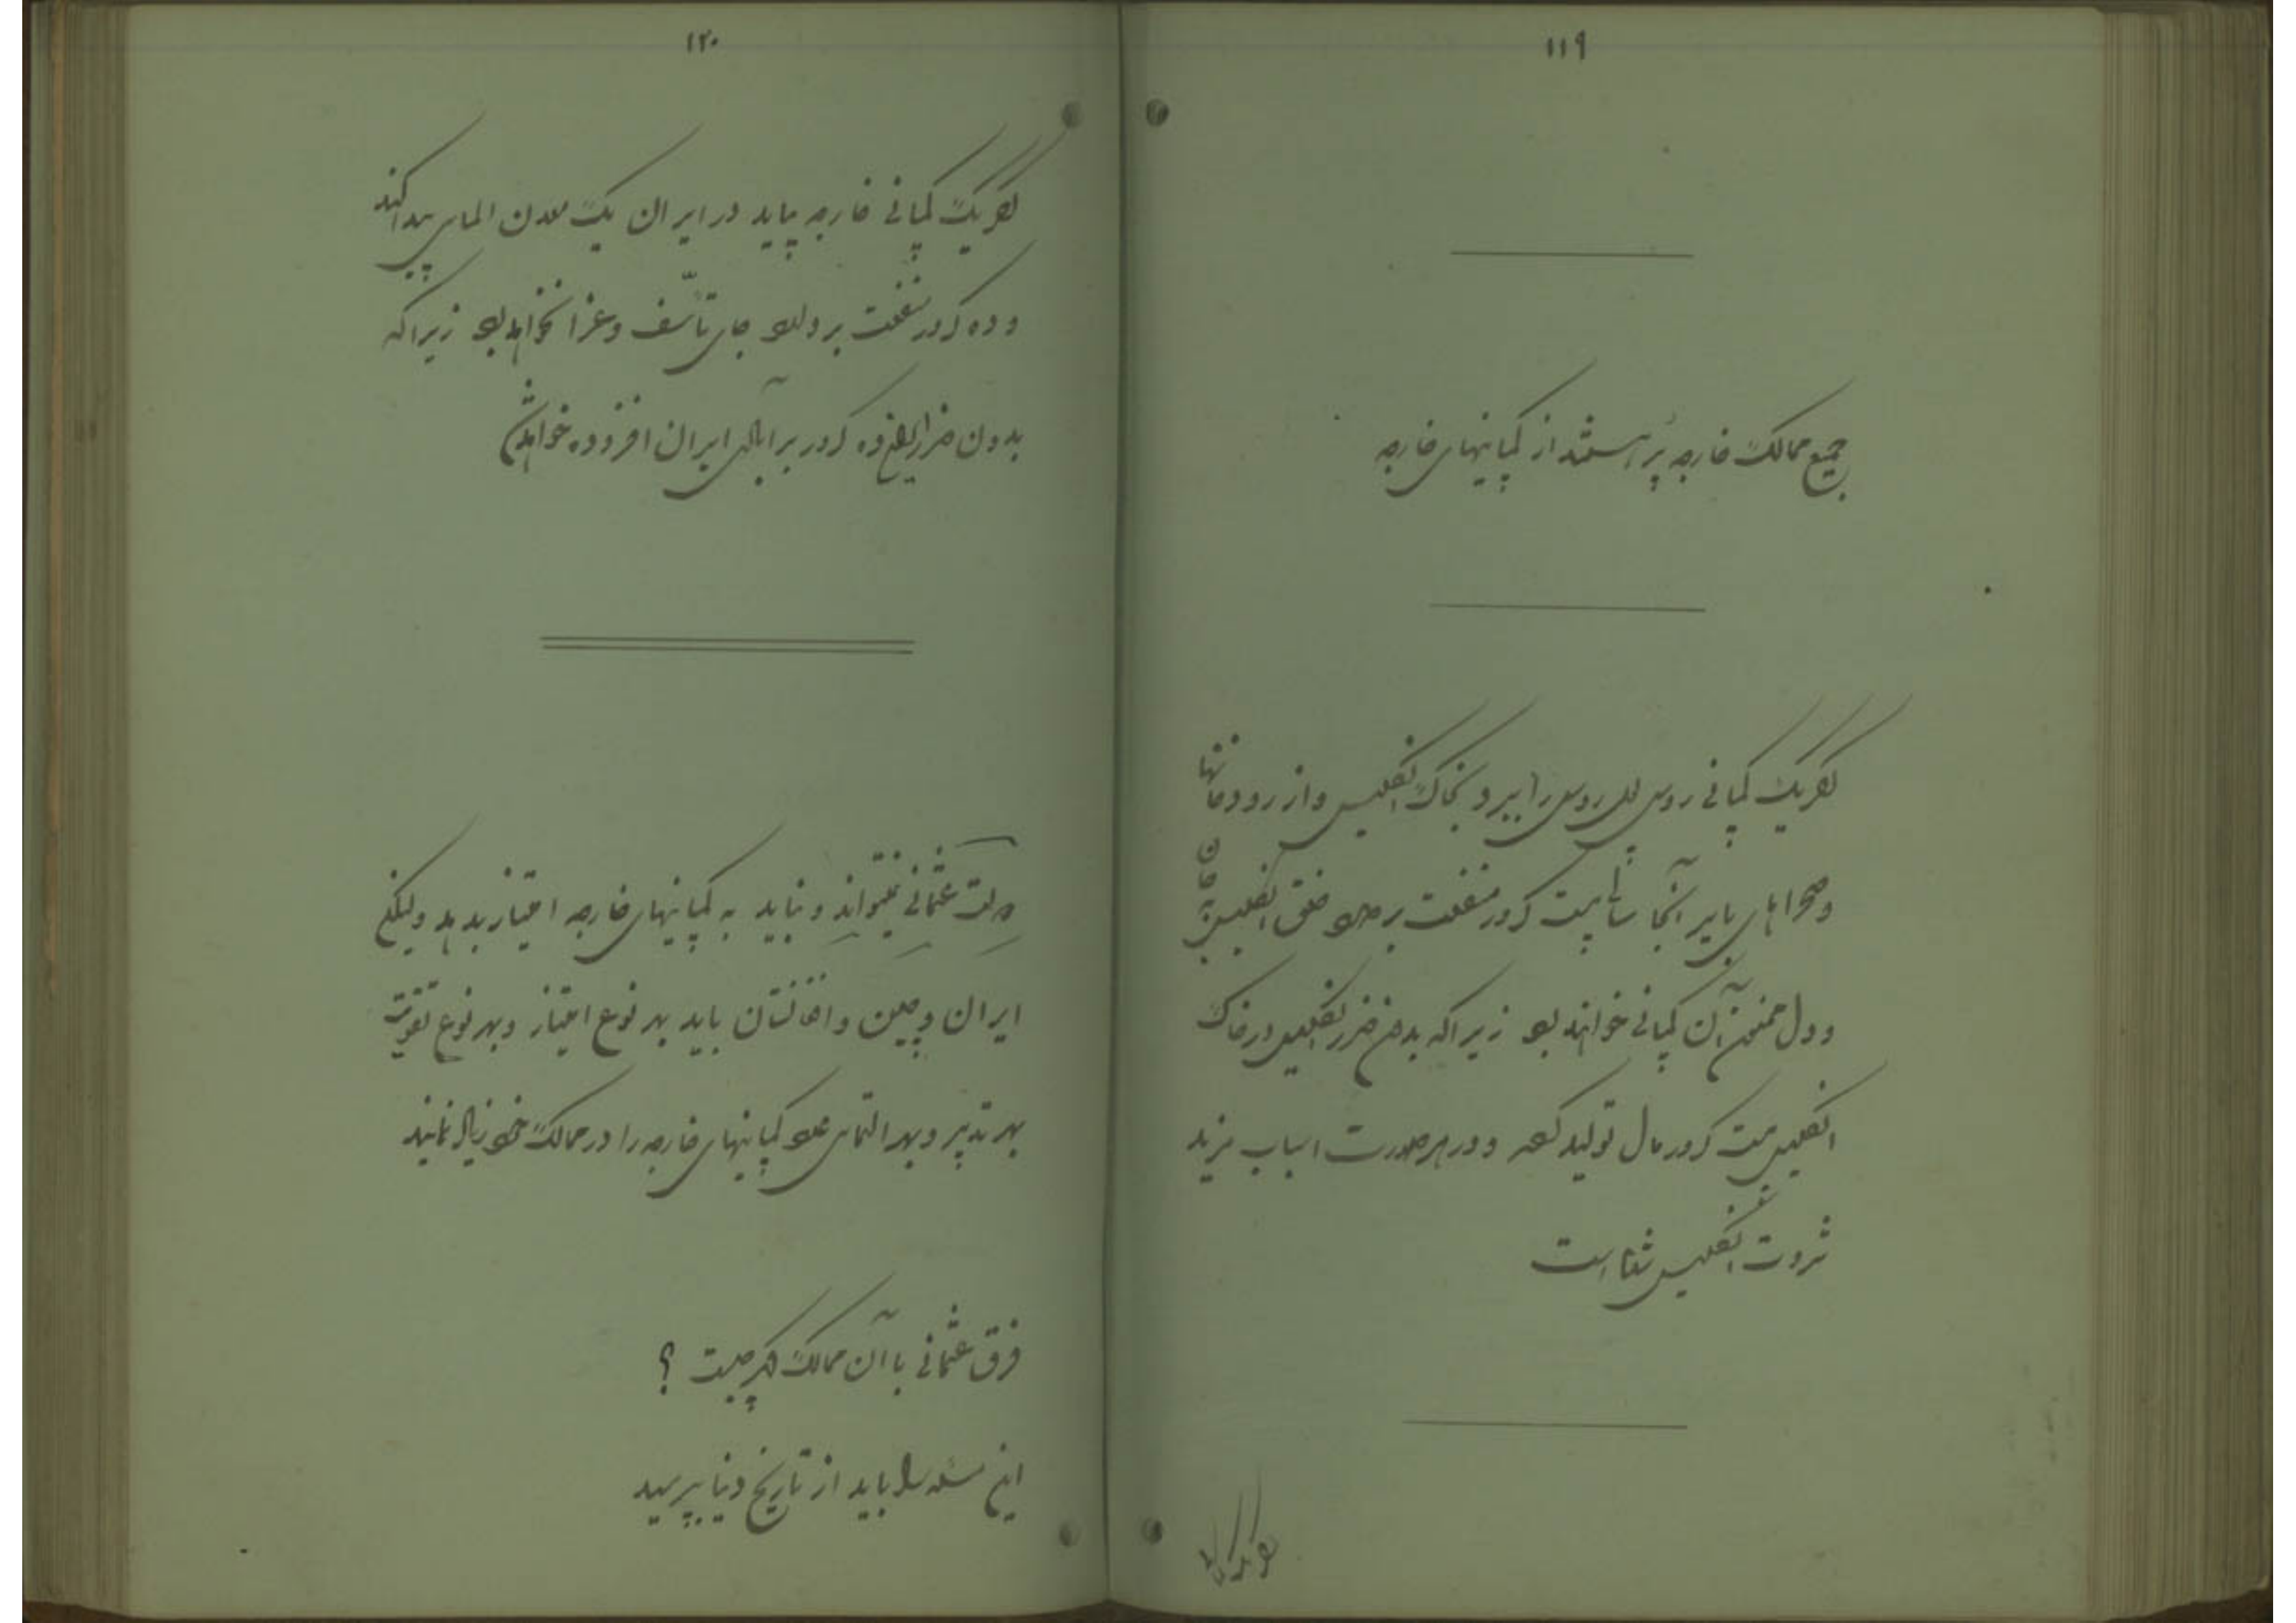 ۱۱۹
جمیع ممالک خارجه پر هستند از کمپانیهای خارجه
اگر یک کمپانی روس پول روس را ببرد بخاک انگلیس و از رودخانها
و صحراهای بایر آنجا سالی بیست کرور منفعت بردارد خلق انگلیس
و دول ممنون آن کمپانی خواهند بود زیرا که بدون ضرر انگلیس در خاک
انگلیس بیست کرور مال تولید کرده و در هر صورت اسباب مزید
ثروت انگلیس شده است
اگر یک کمپا
۱۲۰
اگر یک کمپانی خارجه بیاید در ایران یک معدن الماس پیدا کند
و ده کرور منفعت بردارد جای تأسف و عزا نخواهد بود زیرا که
بدون ضرر احدی ده کرور بر آبادی ایران افزوده خواهد شد
دولت عثمانی نمیتواند و نباید به کمپانیهای خارجه امتیاز بدهد ولیکن
ایران و چین و افغانستان باید بهر نوع امتیاز و بهر نوع تقویت
بهر تدبیر و بهر التماس کمپانیهای خارجه را در ممالک خود زیاد نمایند
فرق عثمانی با آن ممالک دیگر چیست ؟
این مسئله را باید از تاریخ دنیا بپرسید